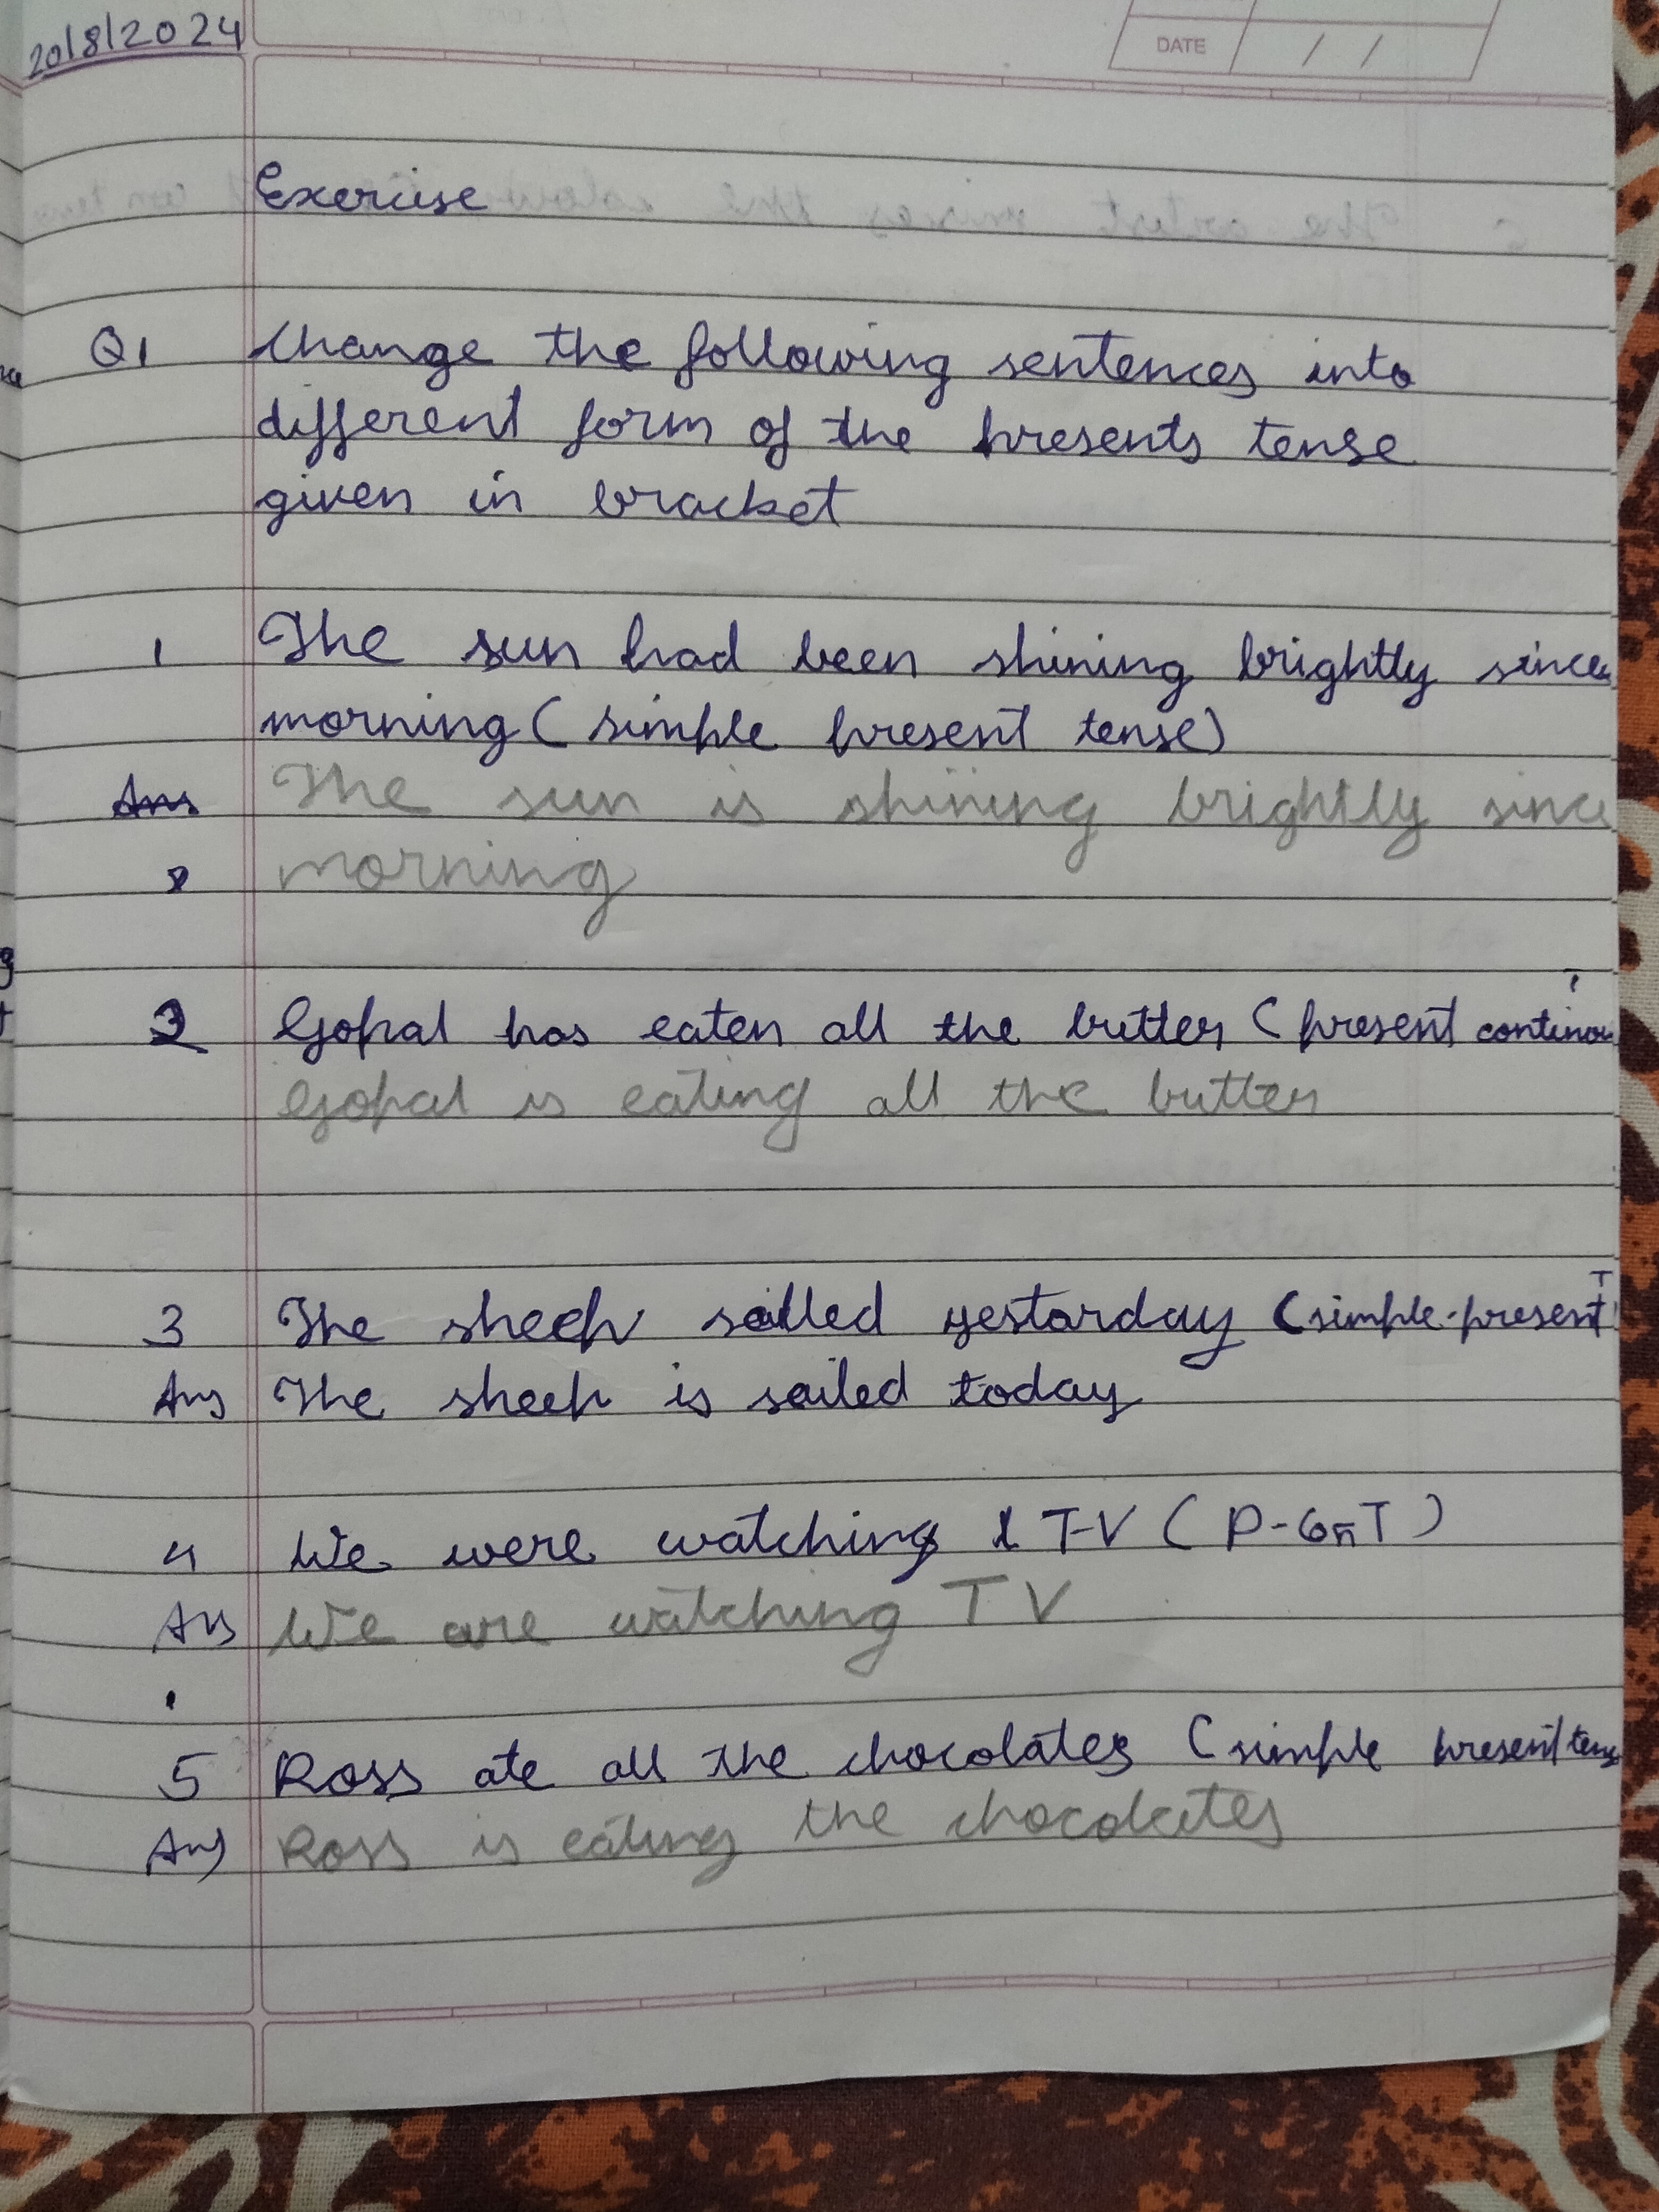 20/8/2024
DATE / /
Exercise
Q1 Change the following sentences into
different form of the presents tense
given in bracket
1 The sun had been shining brightly since
morning (simple present tense)
Ans The sun is shining brightly since
morning
2 Gopal has eaten all the butter (present continou
Gopal is eating all the butter
3 The sheep sailed yestarday (simple-present T
Ans The sheep is sailed today
4 We were watching TV (P-ConT)
Ans We are watching TV
5 Ross ate all the chocolates (simple present tense
Ans Ross is eating the chocolates